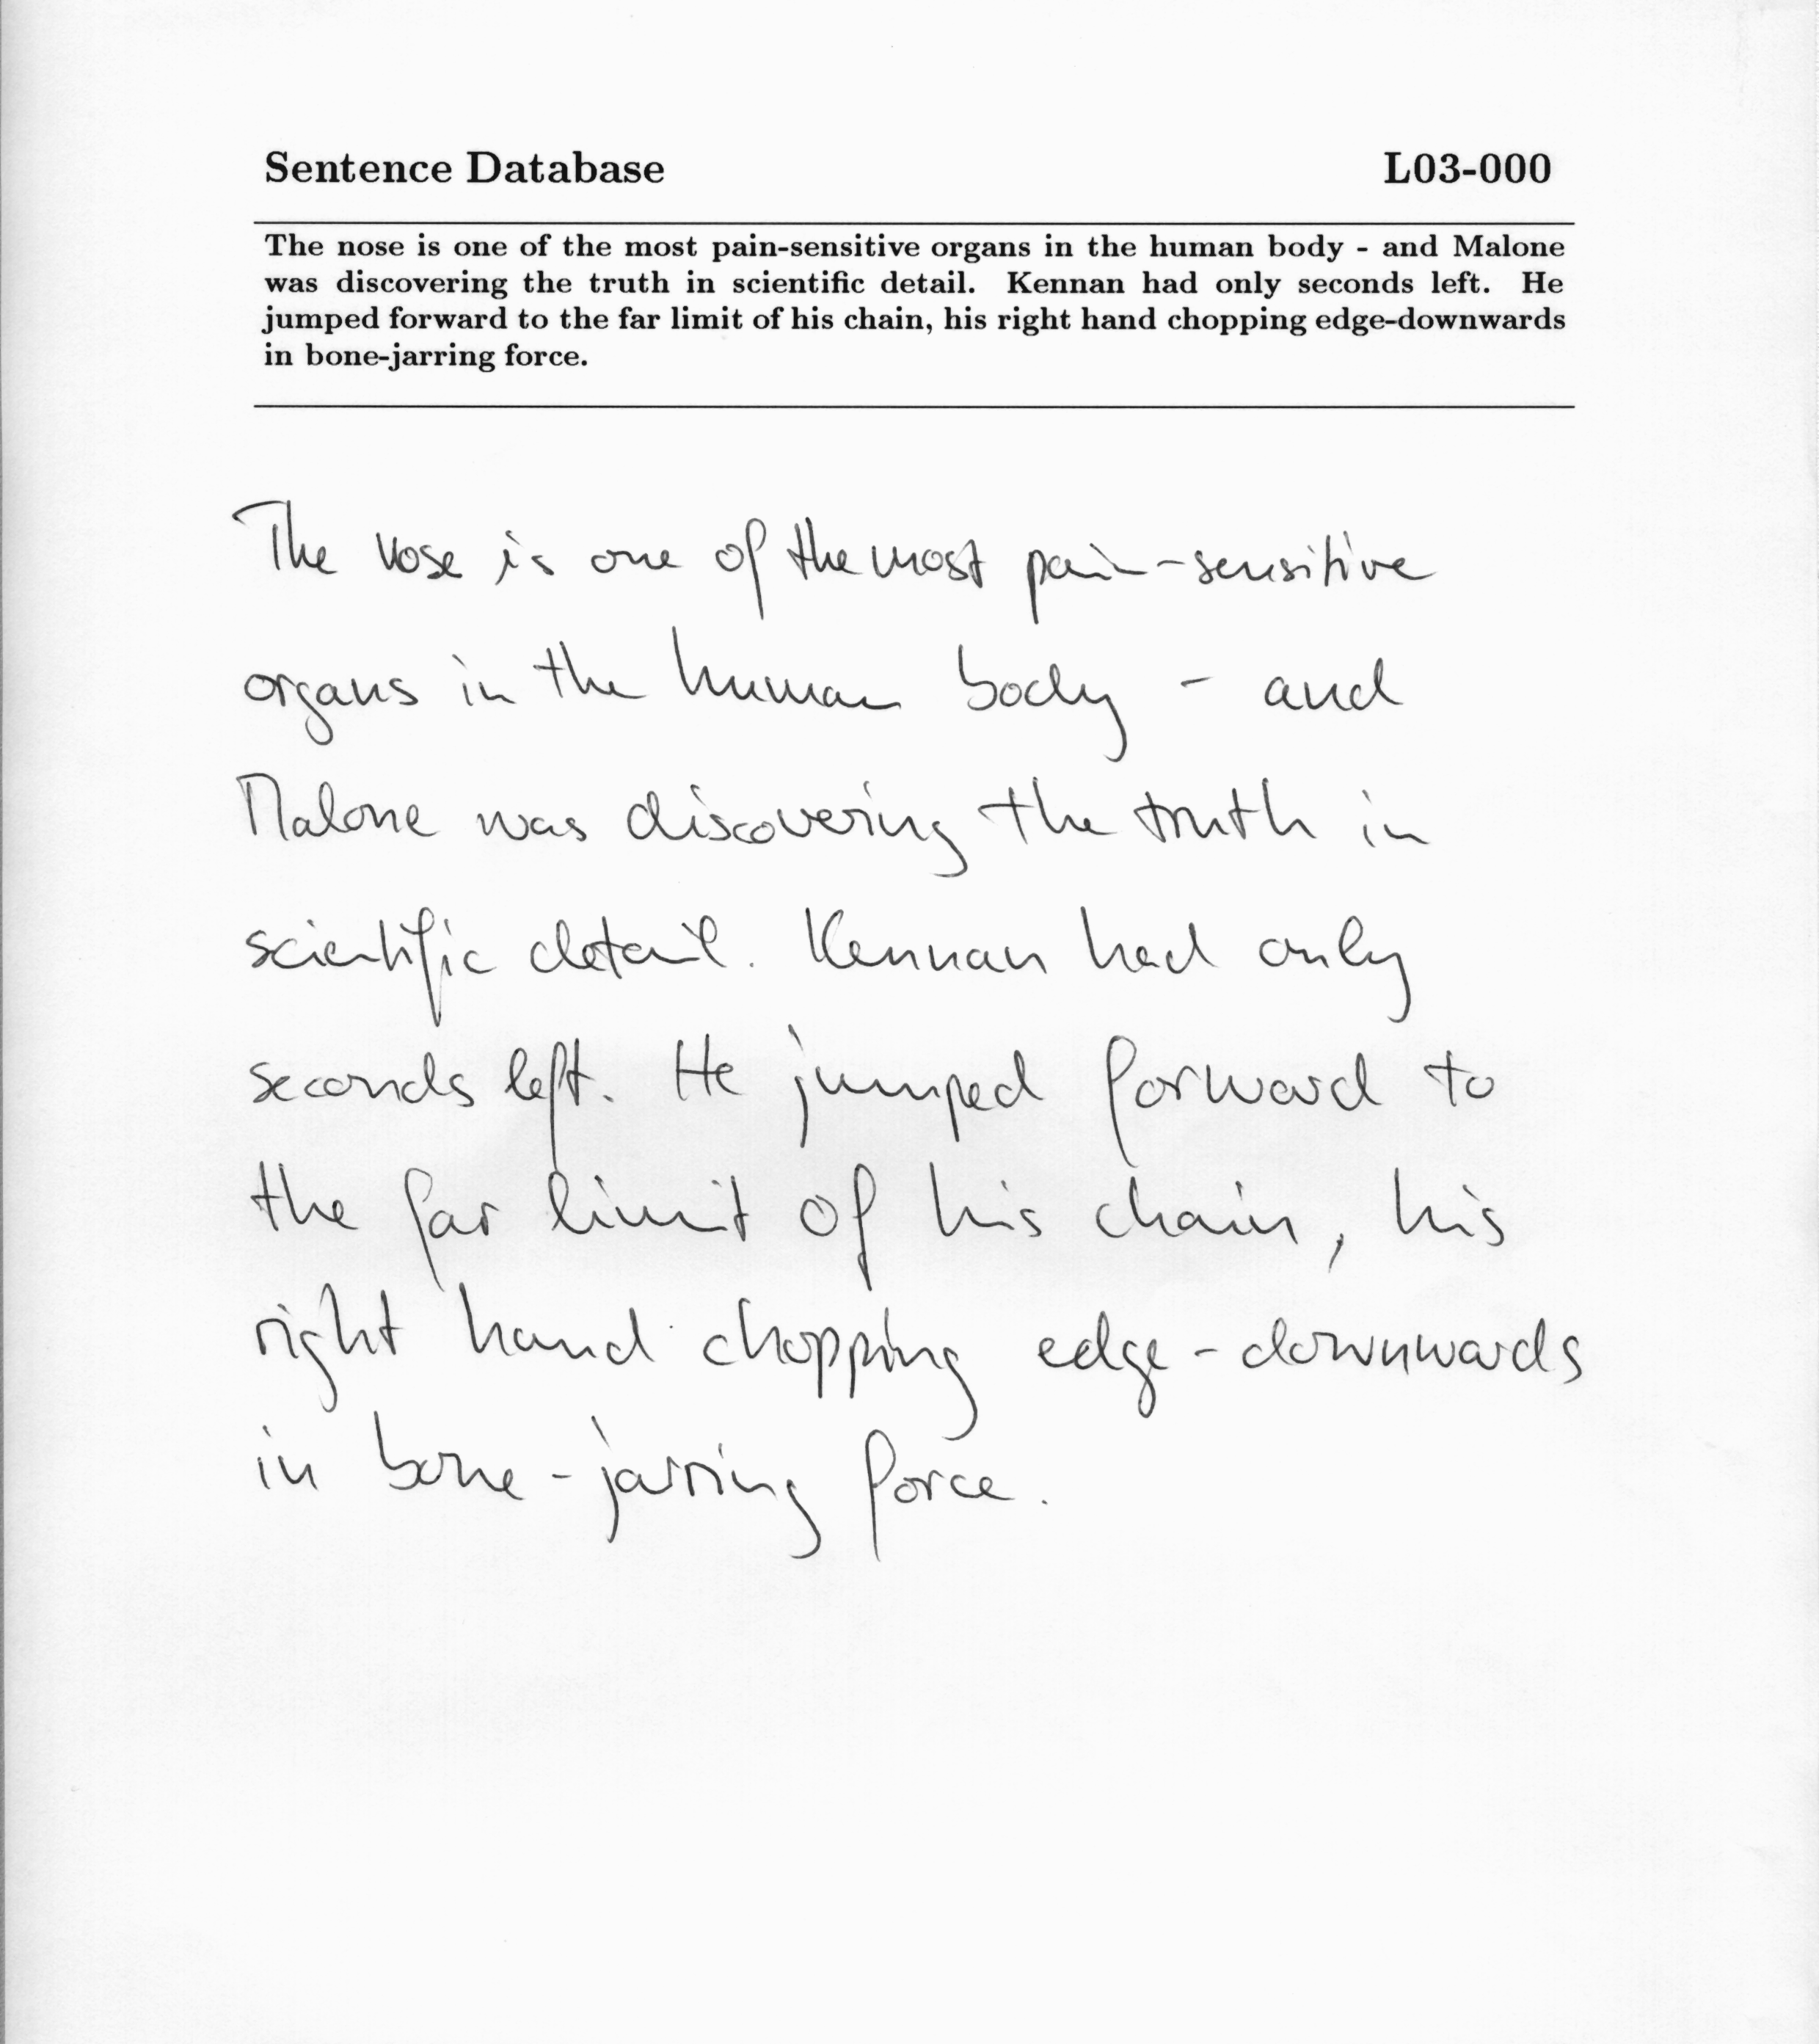 Sentence Database L03-000
The nose is one of the most pain-sensitive organs in the human body - and Malone
was discovering the truth in scientific detail. Kennan had only seconds left. He
jumped forward to the far limit of his chain, his right hand chopping edge-downwards
in bone-jarring force.
The nose is one of the most pain-sensitive
organs in the human body - and
Malone was discovering the truth in
scientific detail. Kennan had only
seconds left. He jumped forward to
the far limit of his chain, his
right hand chopping edge-downwards
in bone-jarring force.